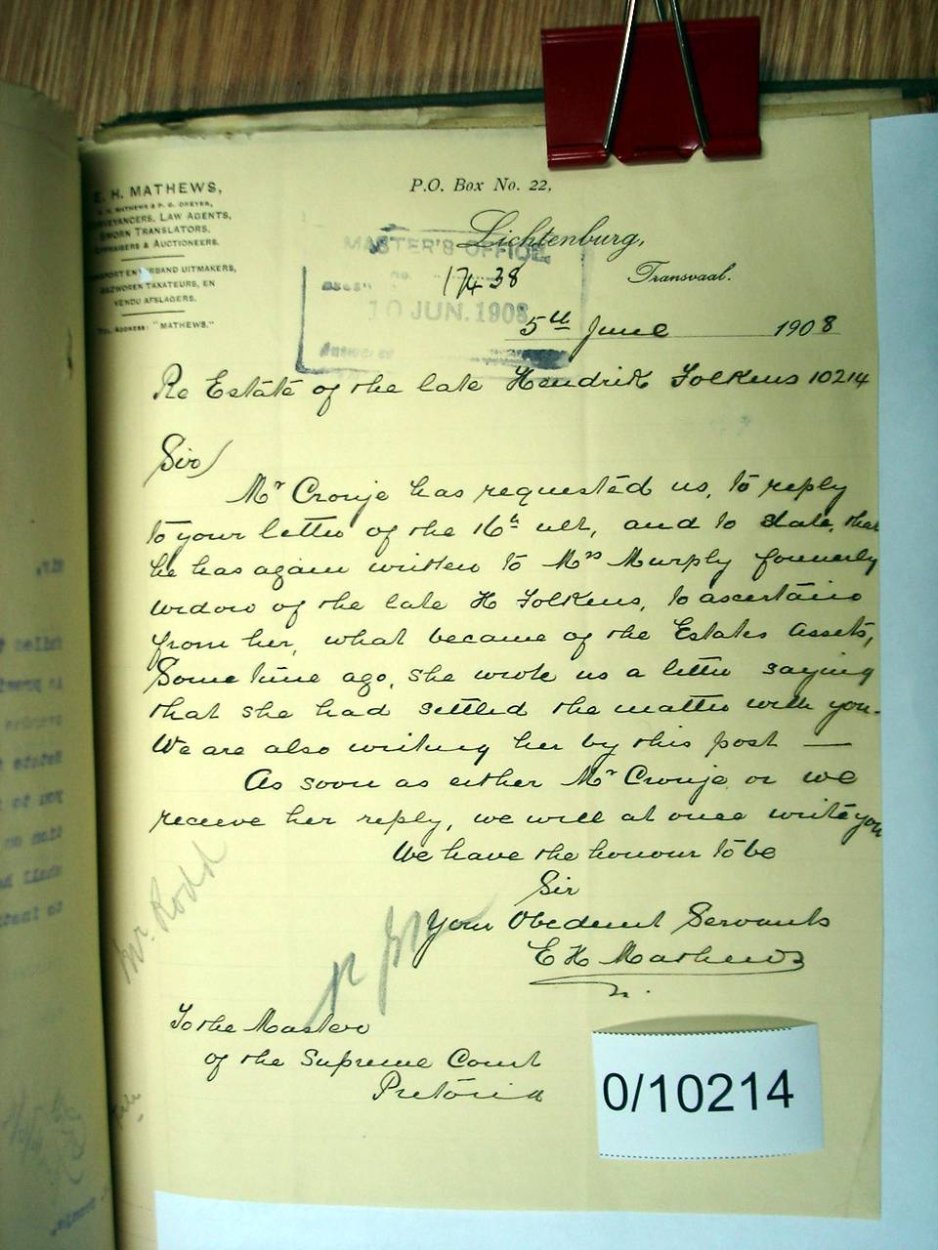 E. H. MATHEWS,
LAW AGENTS,
SWORN TRANSLATORS,
& AUCTIONEERS.
UITMAKERS,
TAXATEURS, EN
VENDU AFSLAGERS.
ADDRESS: "MATHEWS."
P.O. Box No. 22,
Lichtenburg,
Transvaal.
MASTER'S OFFICE
17438
10 JUN. 1908
5th June 1908
Re Estate of the late Hendrik Folkens 10214
Sir/
Mr Cronje has requested us, to reply
to your letter of the 16th ult, and to state, that
he has again written to Mrs Murphy formerly
widow of the late H Folkens, to ascertain
from her, what became of the Estates Assets,
Some time ago, she wrote us a letter saying
that she had settled the matter with you.
We are also writing her by this post —
As soon as either Mr Cronje or we
receive her reply, we will at once write you
We have the honour to be
Sir
Your Obedient Servants
E H Mathews
Mr. Rodd
To the Master
of the Supreme Court
Pretoria
0/10214